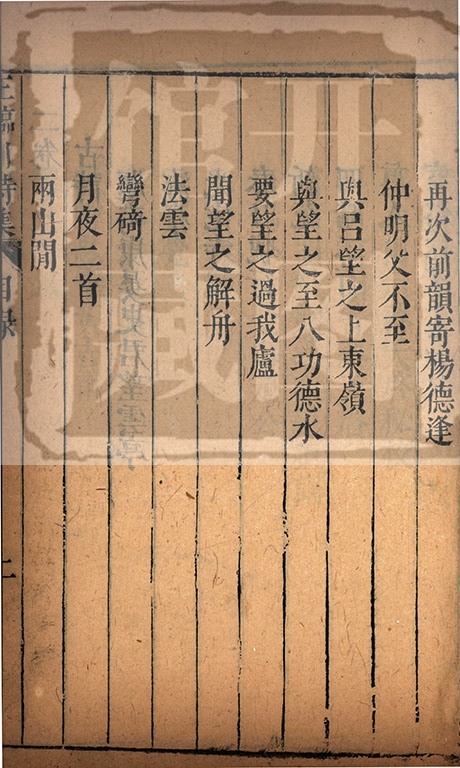 再次前韻寄楊德逢
仲明父不至
與呂望之上東嶺
與望之至八功德水
要望之過我廬
聞望之解舟
法雲
彎碕
月夜二首
兩山間
王臨川詩集 目錄 二